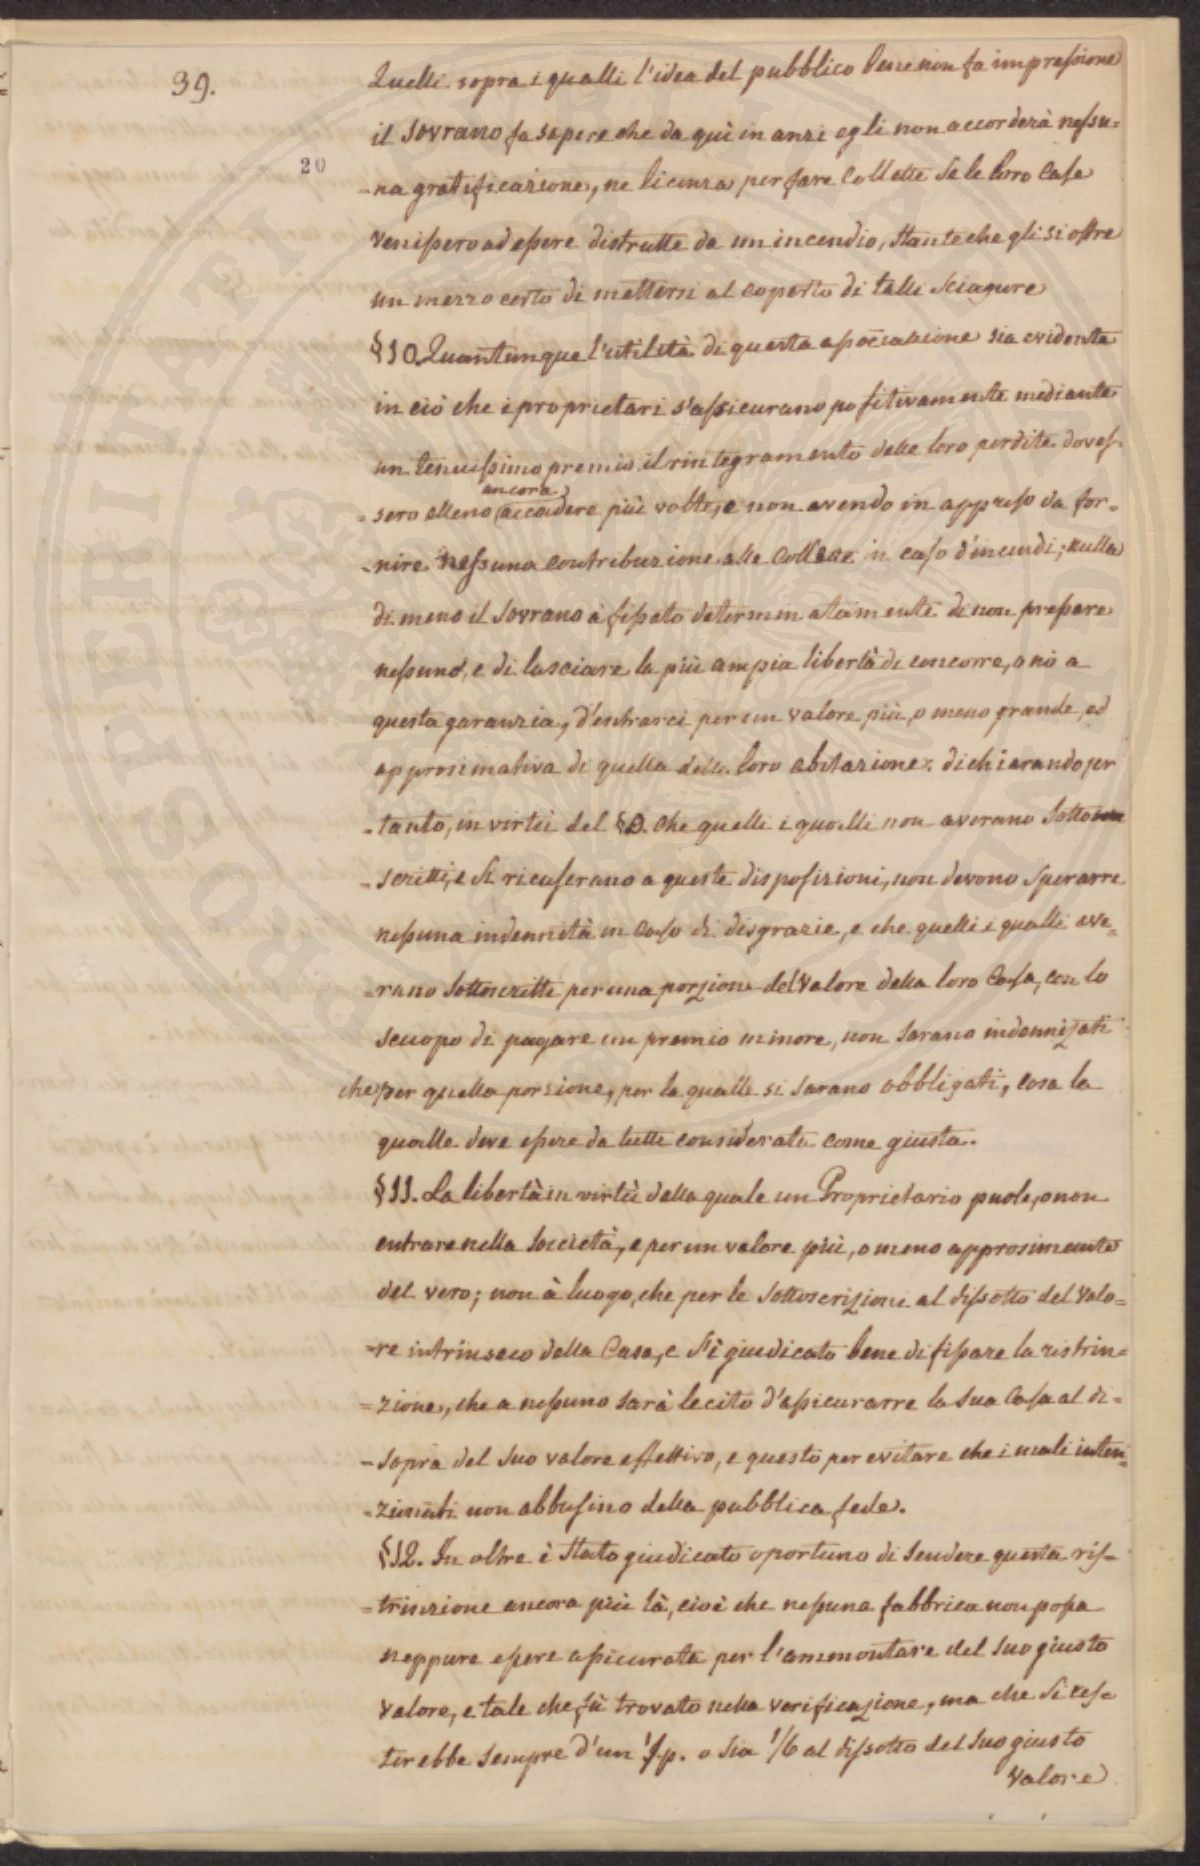 39.
20
Quelli sopra i qualli l'idea del pubblico bene non fa impressione
il Sovrano fa sapere che da quì in anzi egli non accorderà nessu=
=na gratificazione, ne licenza per fare Collette se le loro Case
venissero ad essere distrutte da un incendio, stante che gli si offre
un mezzo certo di mettersi al coperto di talli sciagure
§10. Quantunque l'utilità di questa associazione sia evidente
in ciò che i proprietari s'assicurano positivamente mediante
un tenuissimo premio il rintegramento delle loro perdite doves-
ancora
=sero elleno accadere più volte, e non avendo in appresso da for=
=nire nessuna contribuzione alle Collette in caso d'incendi; nulla
di meno il Sovrano à fissato determinatamente di non pressare
nessuno, e di lasciare la più ampia libertà di concorre, o nò a
questa garanzia, d'entrarci per un valore più, o meno grande, ed
approsimativa di quella delle loro abitazione: dichiarando per
=tanto, in virtù del §9. che quelli i qualli non averano Sotto
=scritti, e si ricuserano a queste disposizioni, non devono sperarre
nessuna indennità in caso di disgrazie, e che quelli i qualli ave=
=rano sottoscritte per una porzione del Valore della loro Casa, con lo
scuopo di pagare un premio minore, non sarano indennizati
che per quella porzione, per la qualle si sarano obbligati, cosa la
qualle deve essere da tutti considerata come giusta.
§11. La libertà in virtù della quale un Proprietario puole, o non
entrare nella Soccietà, e per un valore più, o meno approsimante
del vero; non à luogo, che per le sottoscrizioni al dissotto del Valo=
=re intrinseco della Casa, e s'è giudicato bene di fissare la ristrin=
=zione, che a nessuno sarà lecito d'assicurarre la sua Casa al di=
=sopra del suo valore effettivo, e questo per evitare che i mali inten
=zionati non abbusino della pubblica fede.
§12. In oltre è stato giudicato oportuno di stendere questa ris=
=trinzione ancora più là, cioè che nessuna fabbrica non possa
neppure essere assicurata per l'ammontare del suo giusto
valore, e tale che fù trovato nella verificazione, ma che si res=
terebbe sempre d'un p. o sia 1/6 al dissotto del suo giusto
Valore
PROSPERITATI